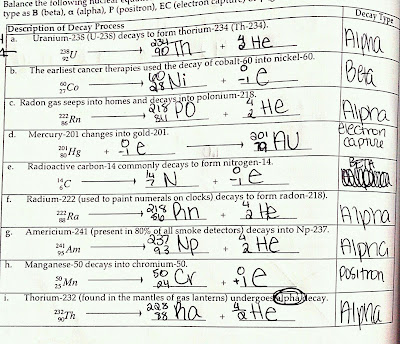 Balance the following nuclear equa
type as B (beta), α (alpha), P (positron), EC (electron captur
Description of Decay Process Decay Type
a. Uranium-238 (U-238) decays to form thorium-234 (Th-234).
238 92 U → 234 90 Th + 4 2 He Alpha
b. The earliest cancer therapies used the decay of cobalt-60 into nickel-60.
60 27 Co → 60 28 Ni + 0 -1 e Beta
c. Radon gas seeps into homes and decays into polonium-218.
222 86 Rn → 218 84 PO + 4 2 He Alpha
d. Mercury-201 changes into gold-201.
201 80 Hg + 0 -1 e → 201 79 AU electron capture
e. Radioactive carbon-14 commonly decays to form nitrogen-14.
14 6 C → 14 7 N + 0 -1 e BETA
f. Radium-222 (used to paint numerals on clocks) decays to form radon-218).
222 88 Ra → 218 86 Rn + 4 2 He Alpha
g. Americium-241 (present in 80% of all smoke detectors) decays into Np-237.
241 95 Am → 237 93 Np + 4 2 He Alpha
h. Manganese-50 decays into chromium-50.
50 25 Mn → 50 24 Cr + 0 +1 e positron
i. Thorium-232 (found in the mantles of gas lanterns) undergoes alpha decay.
232 90 Th → 228 88 Ra + 4 2 He Alpha